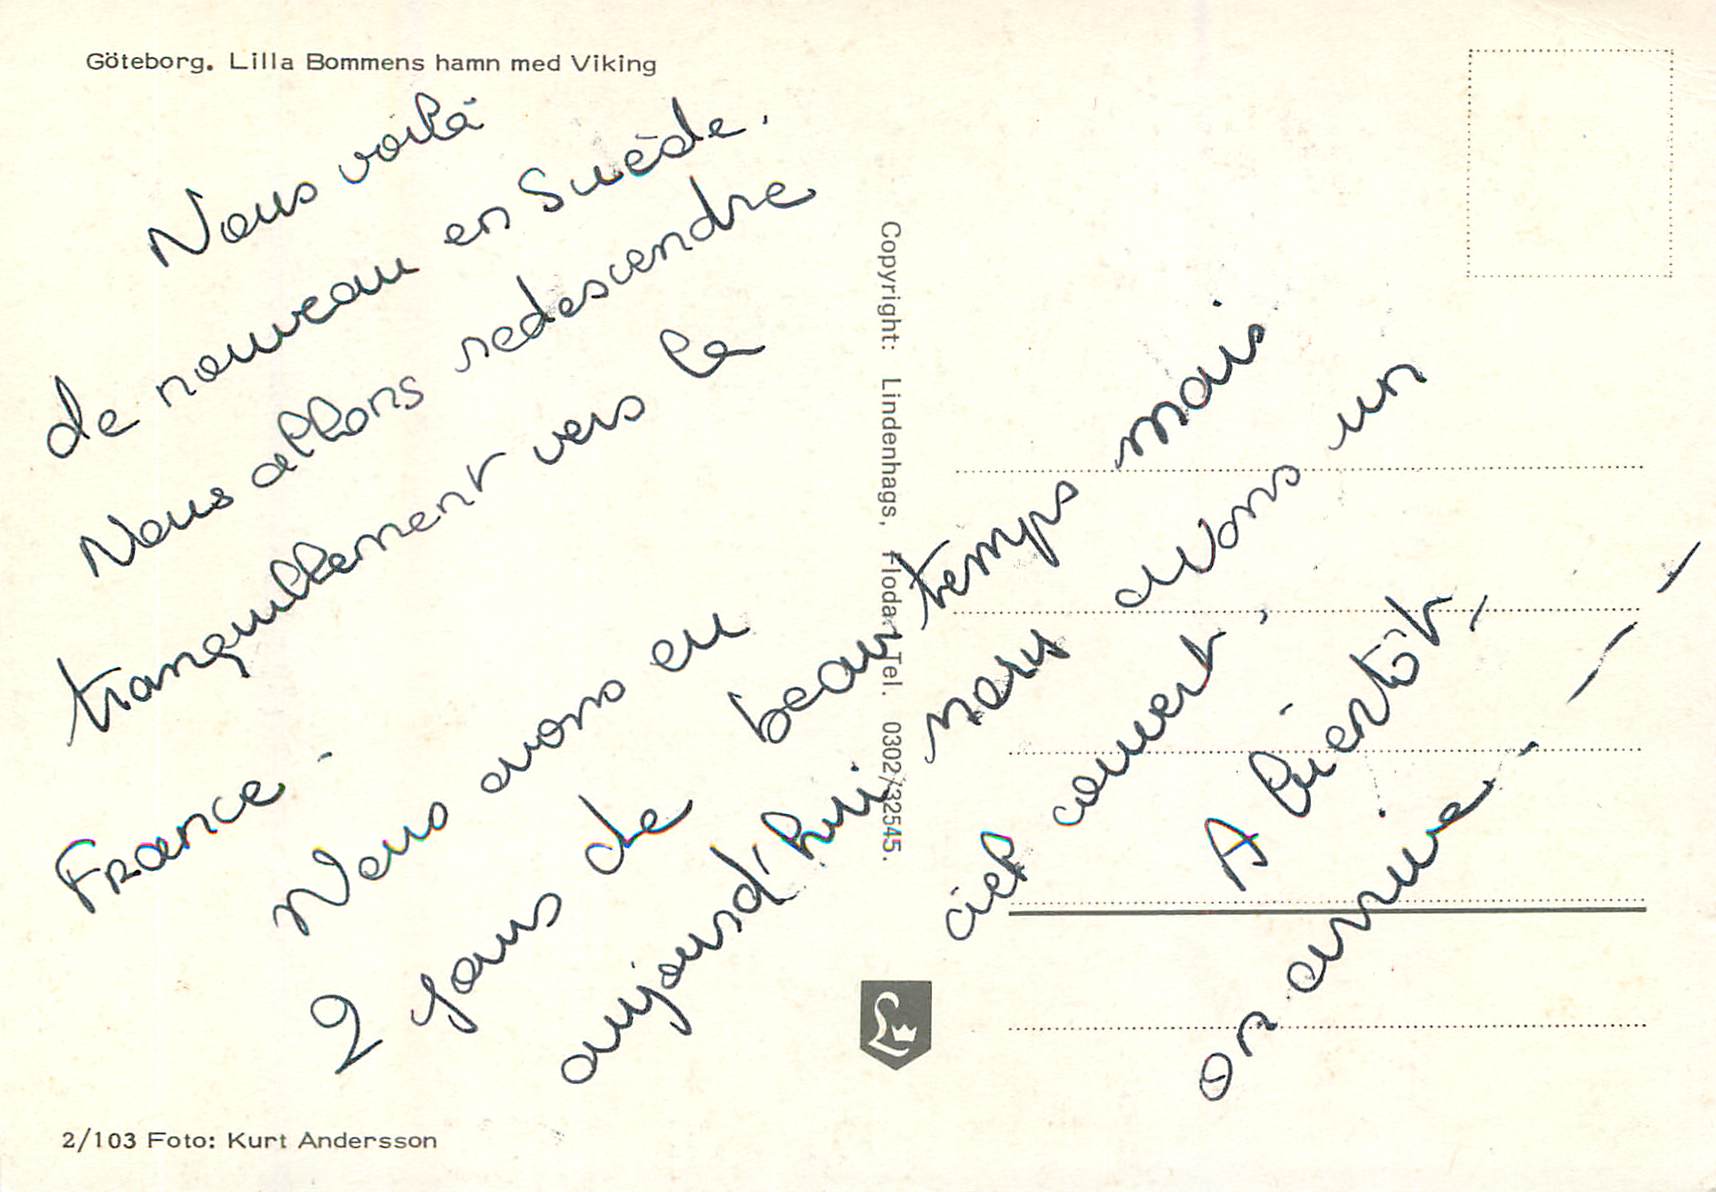 Göteborg. Lilla Bommens hamn med Viking
Nous voilà
de nouveau en Suède.
Nous allons redescendre
tranquillement vers la
France -
Nous avons eu
2 jours de beau temps mais
aujourd'hui nous avons un
ciel couvert.
A bientôt,
on arrive - - -
Copyright: Lindenhags, Floda. Tel. 0302/32545.
L
2/103 Foto: Kurt Andersson